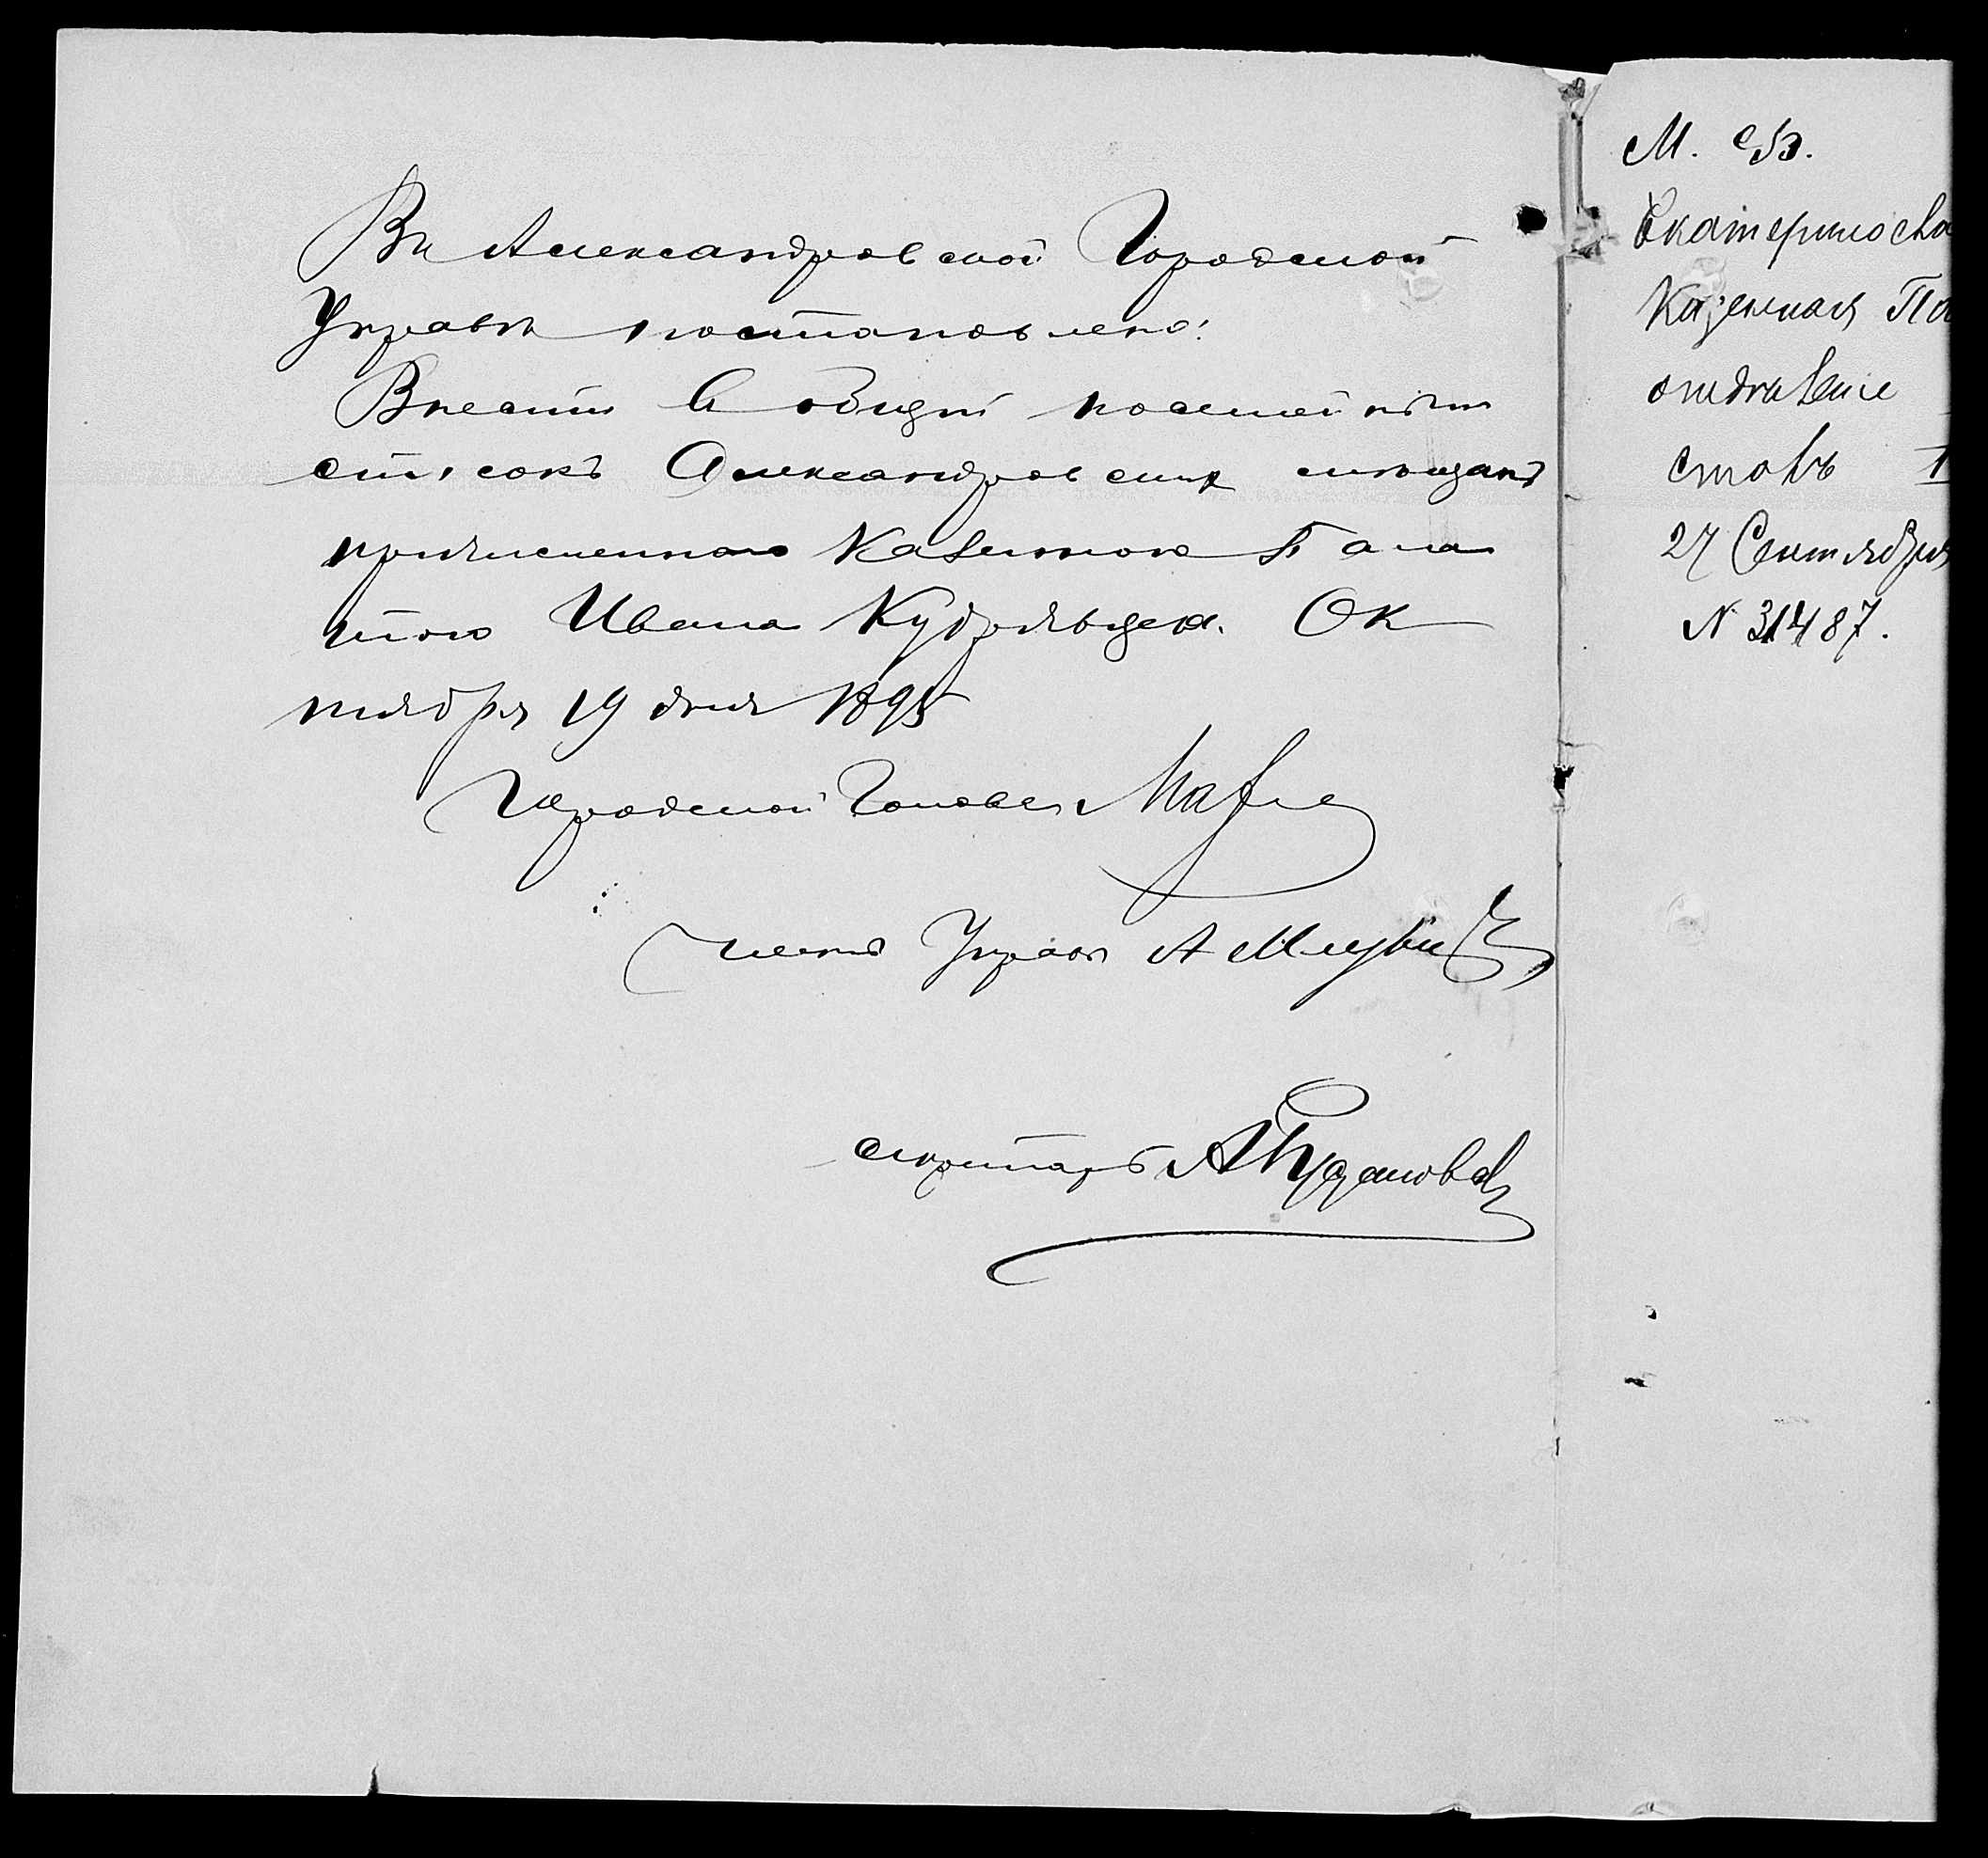 Въ Александровской Городской
Управѣ постановлено:
Внести въ общій посемейный
списокъ Александровскихъ мѣщанъ
причисленнаго Казенною Пала
тою Ивана Кудрявцева. Ок
тября 19 дня 1895
Городской Голова
Членъ Управы А
Секретарь А
М. Ф.
Екатериносла
Казенная Па
отдѣленіе
столъ 1
27 Сентября
N 31487.